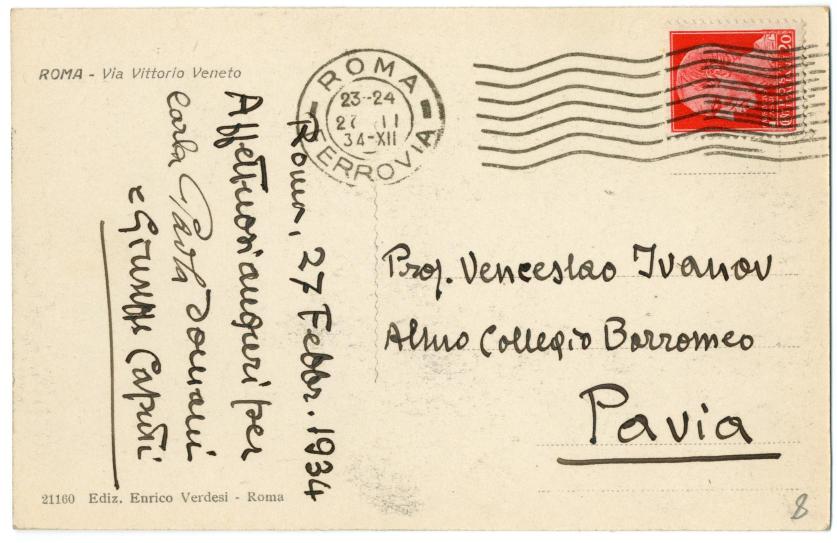 ROMA - Via Vittorio Veneto
Roma, 27 Febbr. 1934
Affettuosi auguri per
domani
Carla
e Giuseppe
21160 Ediz. Enrico Verdesi - Roma
ROMA
23-24
27 II
34-XII
FERROVIA
20
Prof. Venceslao Ivanov
Almo Collegio Borromeo
Pavia
8